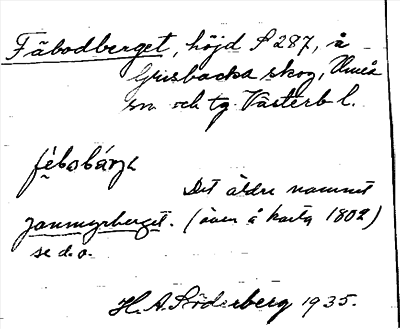 Fäbodberget, höjd P 287, å
Grisbacka skog, Umeå
sn och tg. Västerb. l.
fèbobárjɛ
Det äldre namnet
Janmyrberget. (även å karta 1802)
se d.o.
H. A. Söderberg 1935.